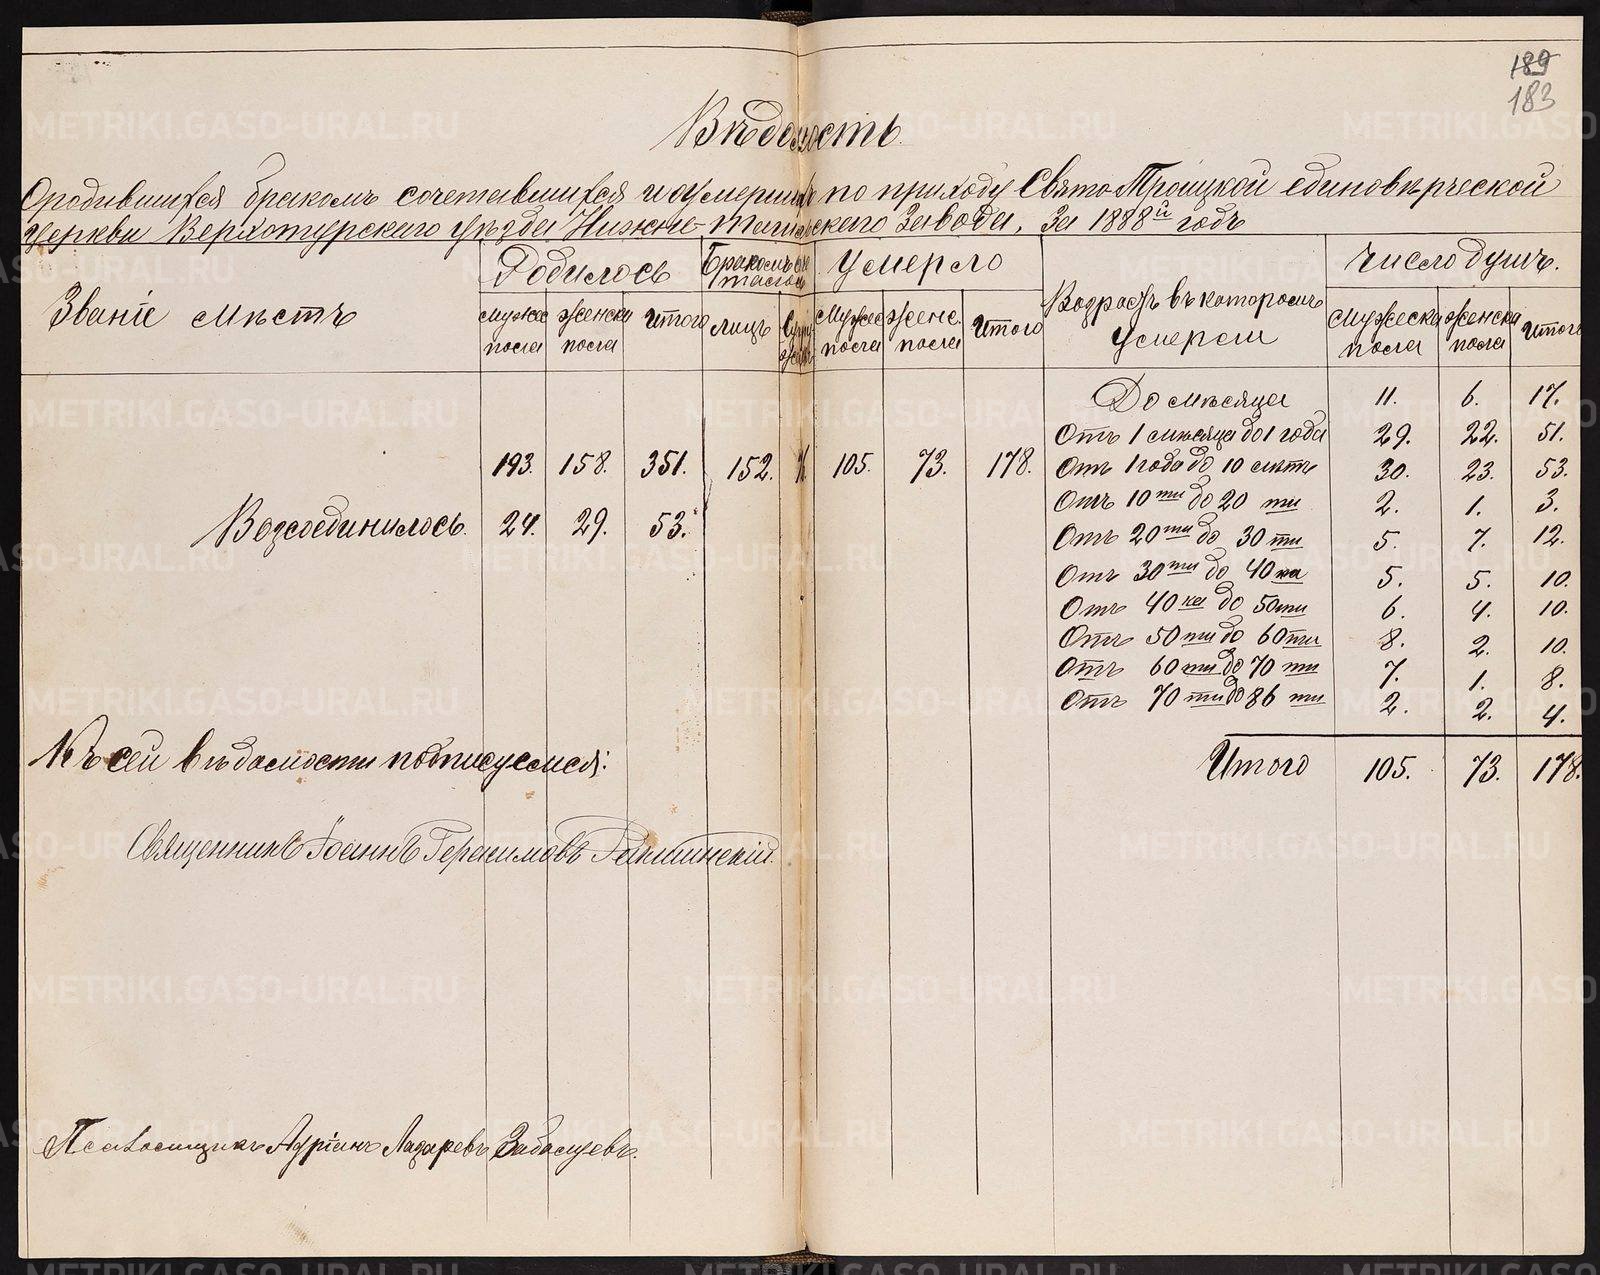 189
183
Вѣдомость.
О родившихся бракомъ сочетавшихся и умершихъ по приходу Свято-Троицкой единовѣрческой
церкви Верхотурскаго уѣзда Нижне-Тагильскаго Завода, За 1888й годъ
Званіе мѣстъ
Родилось
Умерло
Возрастъ въ которомъ умерли
Число душъ.
Мужес пола
женска пола
Итого
лицъ
Мужес пола
женс. пола
Итого
Мужеска пола
женска пола
Итого
193. 158. 351. 152. 105. 73. 178.
Возсоединилось. 24. 29. 53.
До мѣсяца 11. 6. 17.
Отъ 1 мѣсяца до 1 года 29. 22. 51.
Отъ 1 года до 10 лѣтъ 30. 23. 53.
Отъ 10 ти до 20 ти 2. 1. 3.
Отъ 20 ти до 30 ти 5. 7. 12.
Отъ 30 ти до 40 ка 5. 5. 10.
Отъ 40 ка до 50 ти 6. 4. 10.
Отъ 50 ти до 60 ти 8. 2. 10.
Отъ 60 ти до 70 ти 7. 1. 8.
Отъ 70 ти до 86 ти 2. 2. 4.
Итого 105. 73. 178.
Къ сей вѣдомости подписуемся:
Священникъ Іоаннъ Герасимовъ
Псаломщикъ Адріанъ Лазаревъ
METRIKI.GASO-URAL.RU